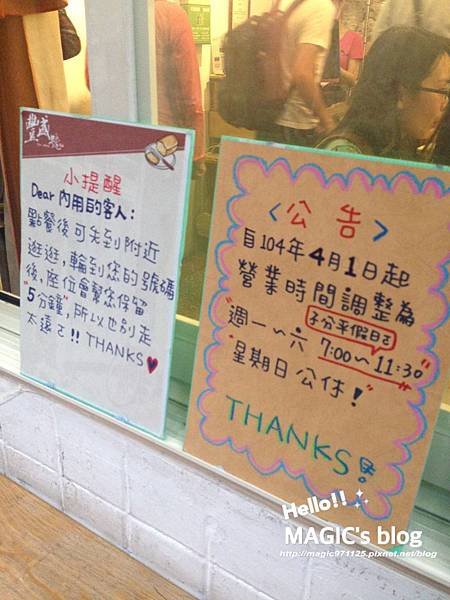 豐盛號
小提醒
Dear 內用的客人：
點餐後可先到附近
逛逛，輪到您的號碼
後，座位會幫您保留
"5分鐘"，所以也別走
太遠ㄛ!! THANKS♥
〈公告〉
自104年4月1日起
營業時間調整為
不分平假日ㄛ
"週一～六 7:00～11:30"
"星期日公休！"
THANKS
Hello!!
MAGIC's blog
http://magic971125.pixnet.net/blog